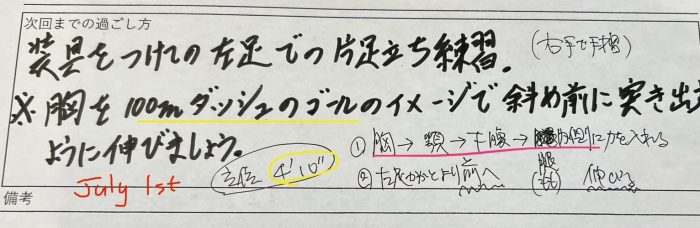 次回までの過ごし方
装具をつけての左足での片足立ち練習。(右手で手摺)
※胸を100mダッシュのゴールのイメージで斜め前に突き出
ように伸びましょう。
①胸→顎→下腹→ に力を入れる
立位 4'10"
②左足かかとより前へ 伸びる
July 1st
備考